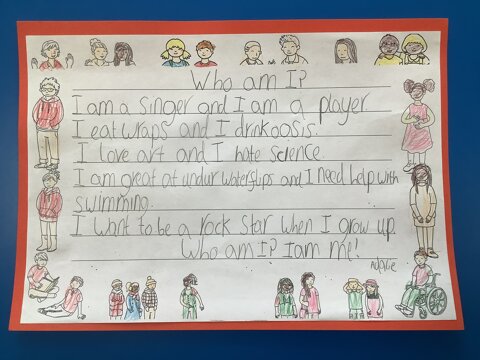 Who am I?
I am a singer and I am a player.
I eat wraps and I drink oasis.
I love art and I hate science.
I am great at undur waterflips and I need help with
swimming.
I want to be a rock star when I grow up.
Who am I? I am me!